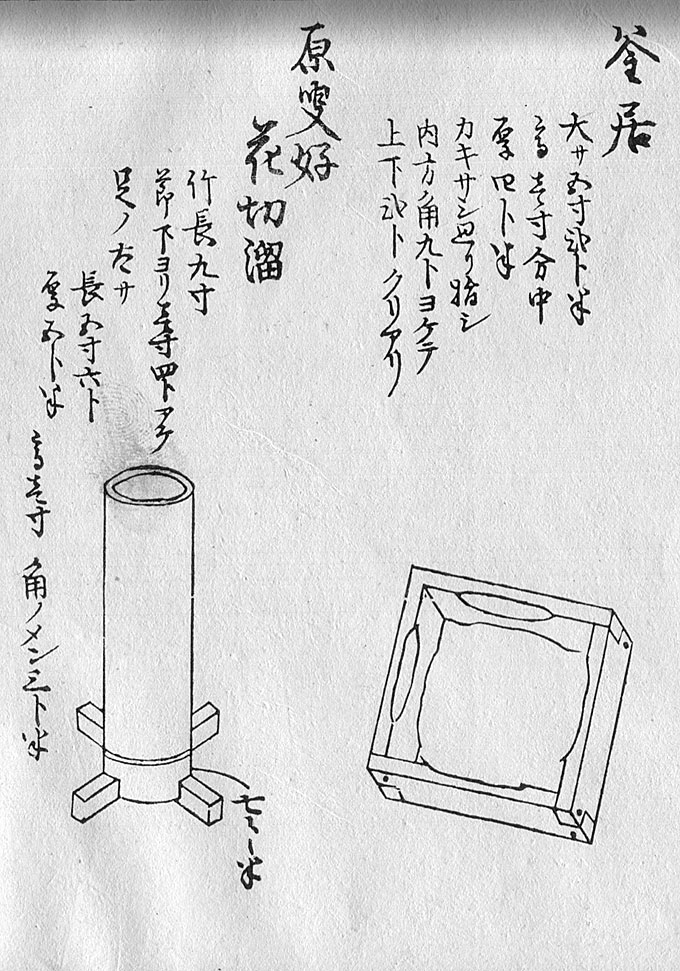 釜居
大サ五寸弐卜半
高サ壱寸分中
厚四卜半
カキサシ廻リ指シ
内方ノ角九卜ヨケテ
上下弐卜クリアリ
原叟好
花切溜
竹長九寸
節下ヨリ壱寸四卜アケ
足ノ大サ
長五寸六卜
厚五卜半
高壱寸
角ノメン三卜半
半